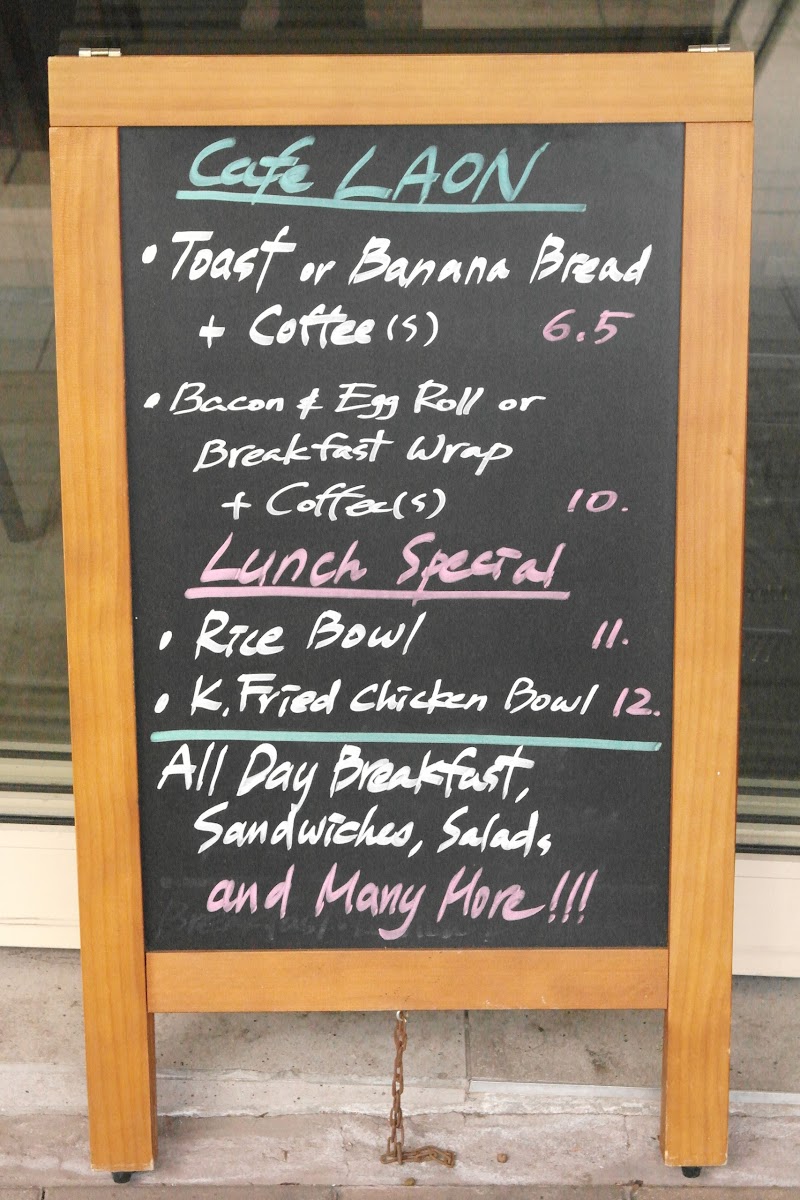 Cafe LAON
• Toast or Banana Bread
+ Coffee(s) 6.5
• Bacon & Egg Roll or
Breakfast Wrap
+ Coffee(s) 10.
Lunch Special
• Rice Bowl 11.
• K. Fried Chicken Bowl 12.
All Day Breakfast,
Sandwiches, Salads
and Many More!!!